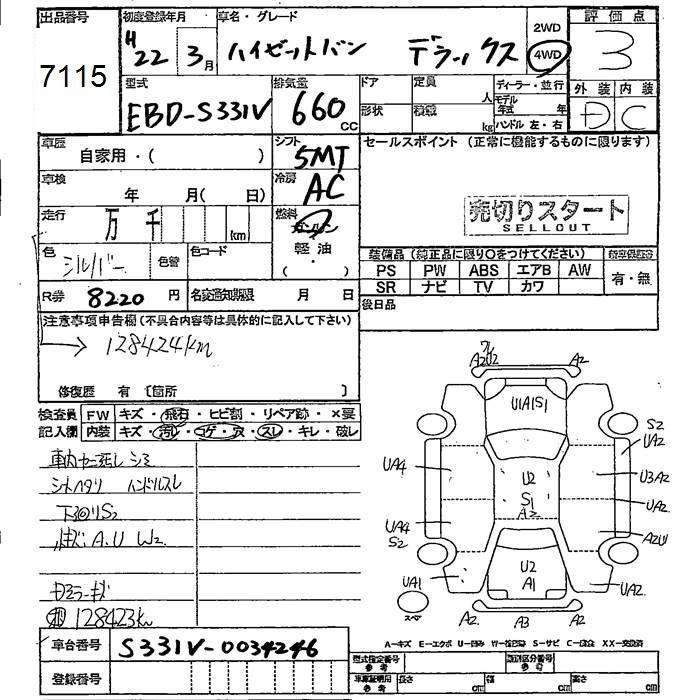 出品番号 初度登録年月 車名・グレード 2WD 評価点
7115 H22 3月 ハイゼットバン デラックス 4WD 3
型式 排気量 ドア 定員 人 ディーラー・並行 外装 内装
EBD-S331V 660cc 形状 積載 kg モデル年式 年 ハンドル 左・右 D C
車歴 自家用・( ) シフト 5MT セールスポイント (正常に機能するものに限ります)
車検 年 月( 日) 冷房 AC
走行 万 千 km 燃料 ガソリン 軽油・( )
売切りスタート
SELLOUT
色 シルバー 色替 色コード
装備品 (純正品に限り○をつけてください) 新車保証書
PS PW ABS エアB AW 有・無
SR ナビ TV カワ
R券 8220円 名変通知期限 月 日 後日品
注意事項申告欄(不具合内容等は具体的に記入して下さい)
→ 128424km
修復歴 有 〔箇所 〕
検査員 FW キズ・飛石・ヒビ割・リペア跡・×要
記入欄 内装 キズ・汚レ・コゲ・穴・スレ・キレ・破レ
シートヘタリ ハンドルスレ
下回りS2
A.U W2
128423km
A2U2 A2
U1A1S1
S2
UA2
UA4 U2 U3A2
S1 UA2
A2
UA4
S2 A2U1
U2
UA1 A1 UA2
スペア A2 A3 A2
A-キズ E-エクボ U-凹み W-補修跡 S-サビ C-腐食 XX-交換済
車台番号 S331V-0034246
登録番号
型式指定番号 参考 類別区分番号 参考
車庫証明用 参考 長さ cm 幅 cm 高さ cm